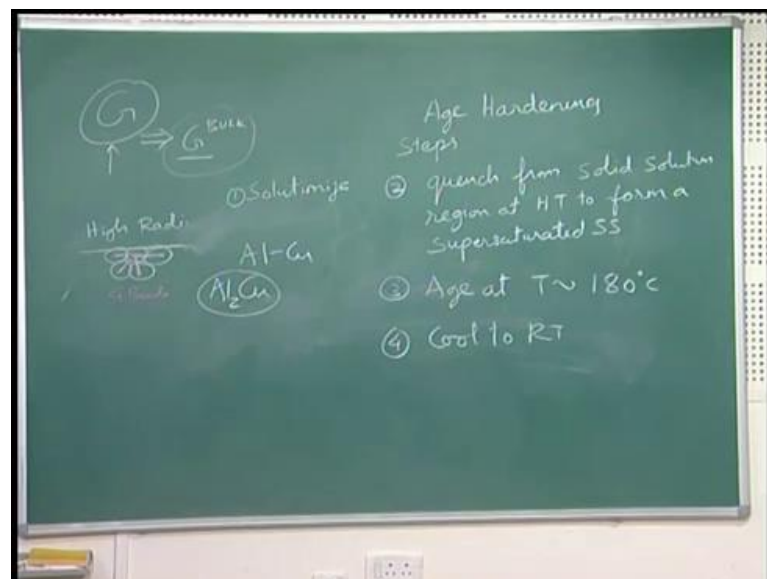 G
G BULK
High Radi
① Solutimije
Al-Cu
Al₂Cu
Age Hardening
Steps
② quench from solid solution
region at HT to form a
supersaturated SS
③ Age at T ~ 180°C
④ Cool to RT